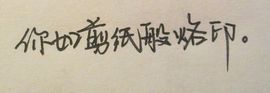 你如剪纸般烙印。